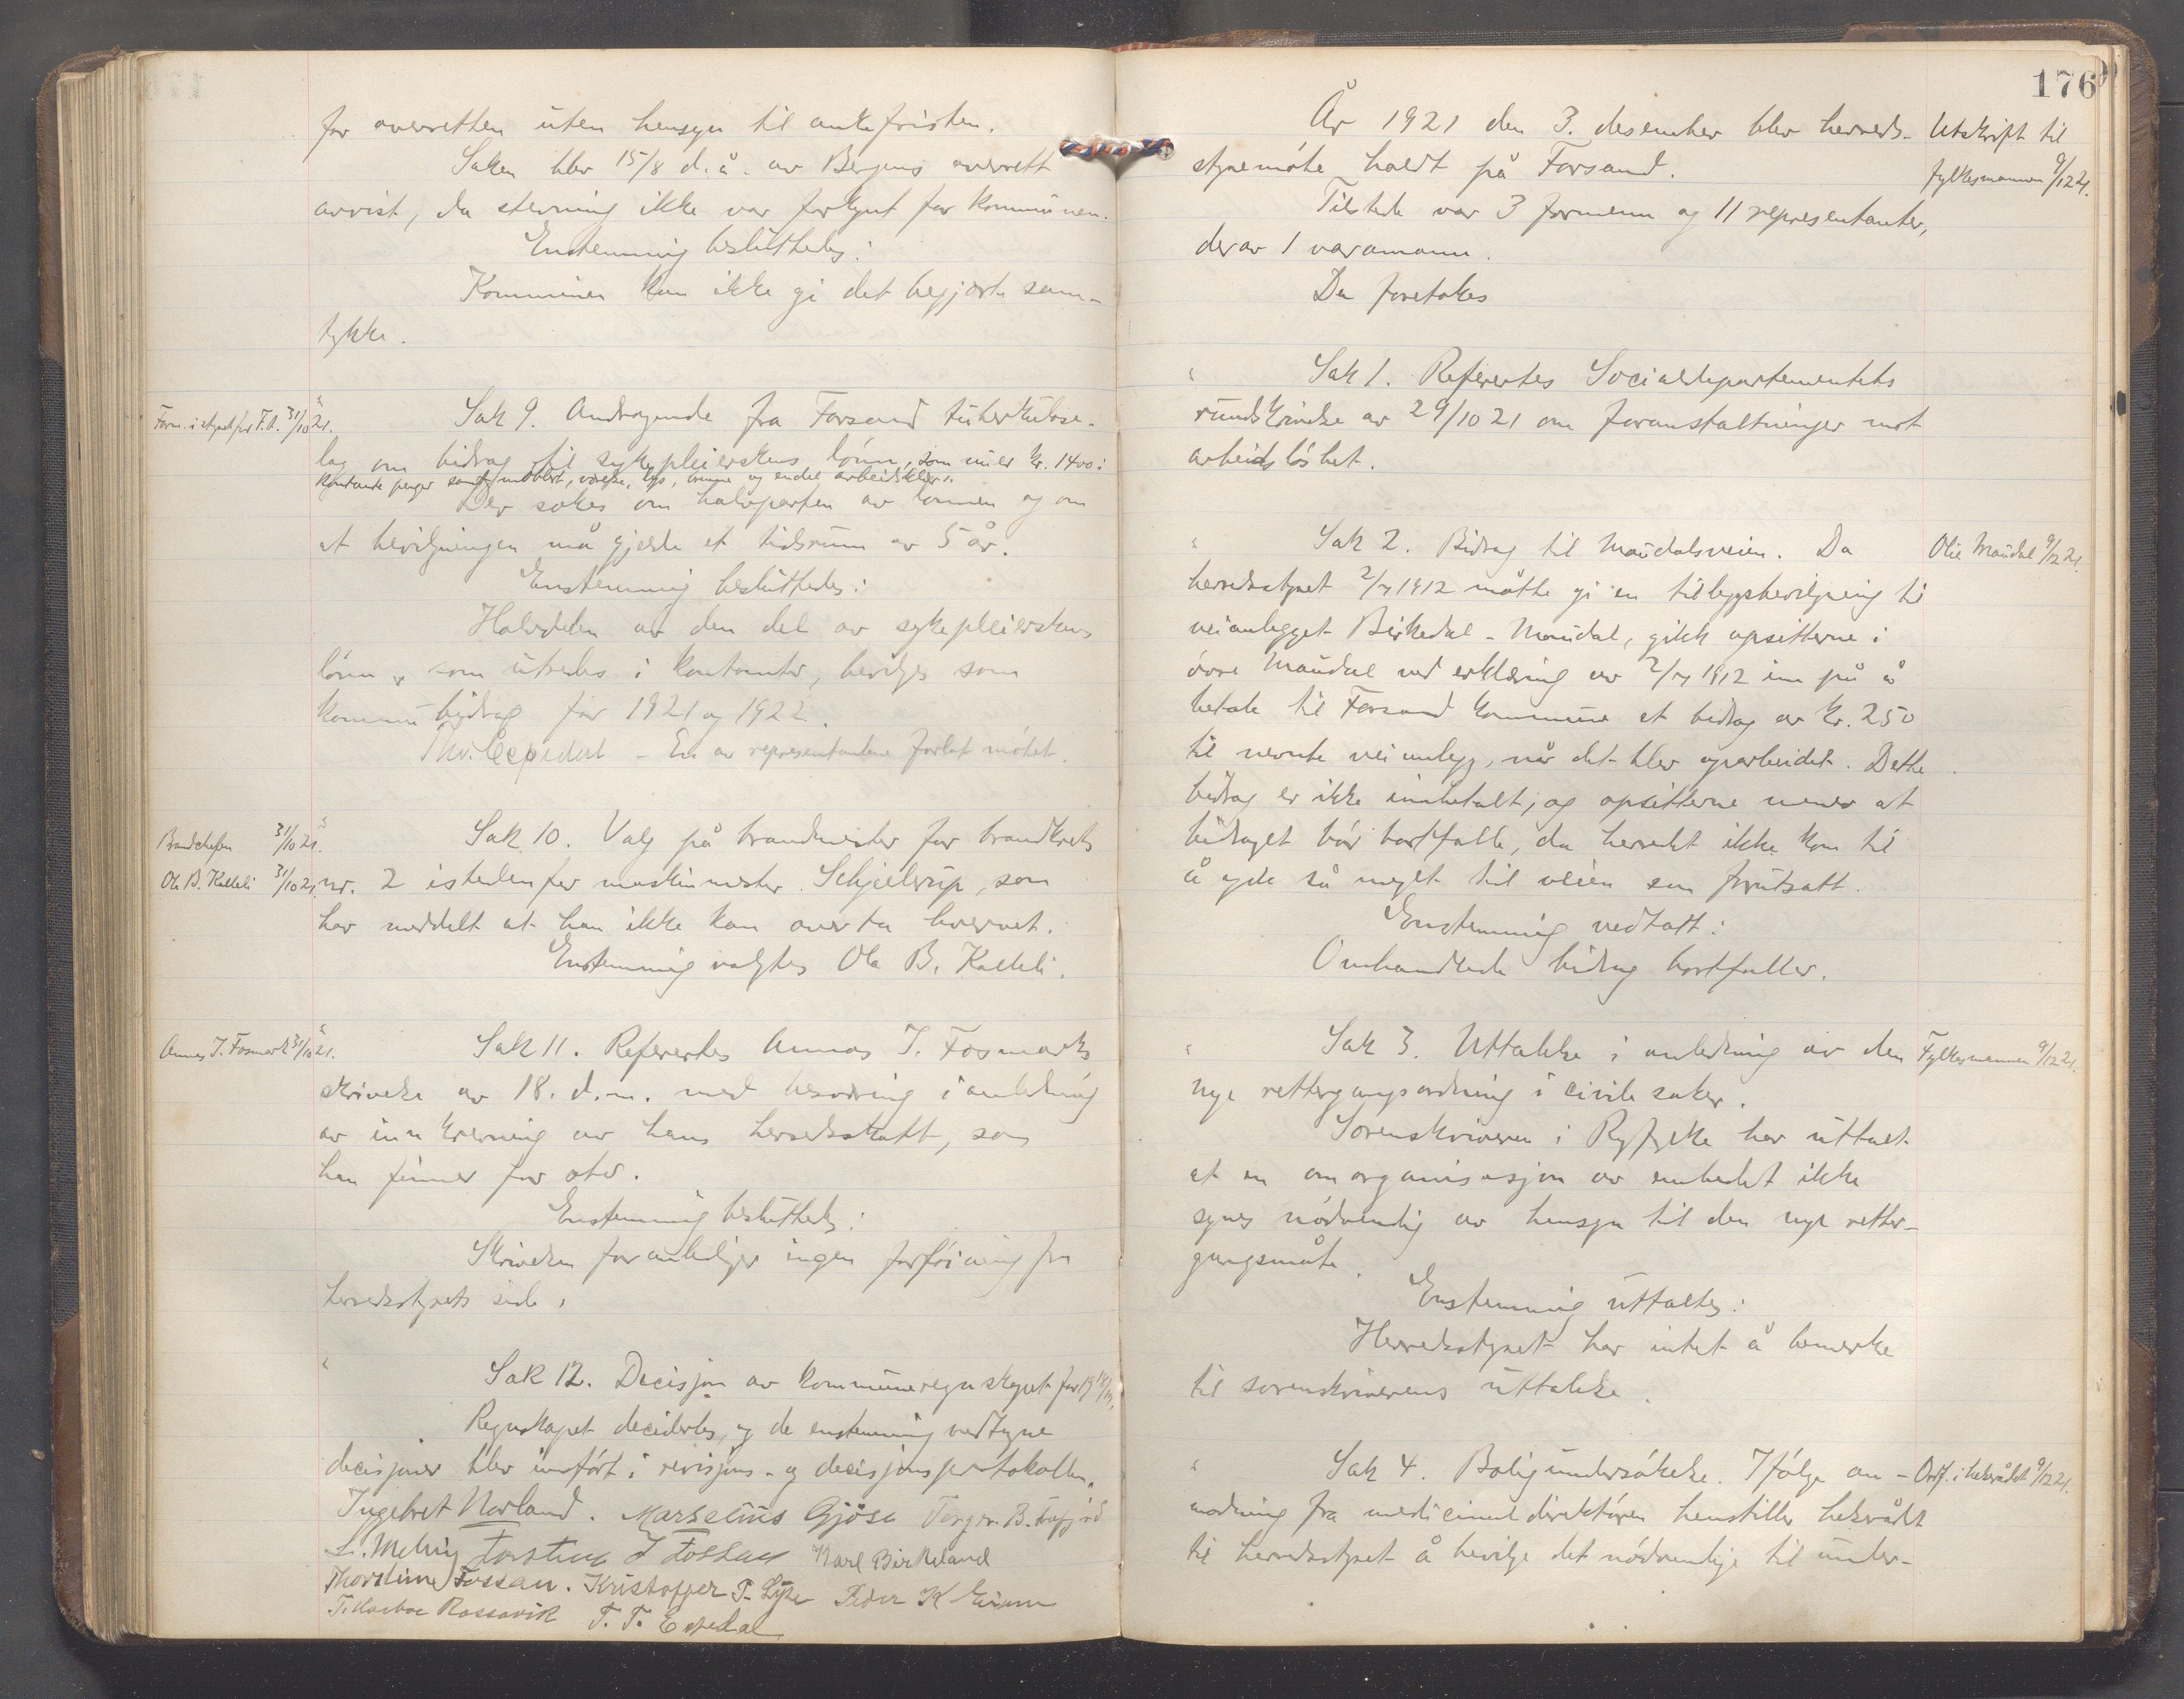 for overretten uten hensyn til ankefristen.
Saken blev 15/8 d.å. av Bergens overrett
avvist, da stevning ikke var forkynt for kommunen.
Enstemmig besluttedes:
Kommunen kan ikke gi det begjærte sam-
tykke.
Form. i styret for F.t. 31/10 21.
Sak 9. Andragende fra Forsand tuberkulose-
lag om bidrag til sykepleierskens lønn, som nu er kr. 1400 i
kontante penger samt møblert, værelse, lys, brenne og endel arbeidsklær.
Der søkes om halvparten av lønnen og om
at bevilgningen må gjelde et tidsrum av 5 år.
Enstemmig besluttedes:
Halvdelen av den del av sykepleierskens
lønn, som utredes i kontanter, bevilges som
kommunebidrag for 1921 og 1922.
Thv. Espedal - En av representantene forlot møtet.
Brandchefen 31/10 21.
Ola B. Kalleli 31/10 21.
Sak 10. Valg på brandmester for brandkrets
nr. 2 istedenfor maskinmester Schjelderup, som
har meddelt at han ikke kan overta hvervet.
Enstemmig valgtes Ola B. Kalleli.
Annas J. Fosmark 31/10 21.
Sak 11. Refertes Annas J. Fosmarks
skrivelse av 18. d.m. med besværing i anledning
av innkrevning av hans herredsskatt, som
han finner for stor.
Enstemmig besluttedes:
Skrivelsen foranlediger ingen forføining fra
herredsstyrets side.
Sak 12. Decisjon av kommuneregnskapet for 1918/19.
Regnskapet decidertes, og de enstemmig vedtagne
decisjoner blev innført i revisjons- og decisjonsprotokollen.
Ingebret Norland. Marselius Gjøse Torger B.
L. Meling Torstein J Fossan Karl Birkeland
Thorstine Fossan. Kristoffer T. Lyse Peder K Eiane
T. Rossavik T. T. Espedal
176
År 1921 den 3. desember blev herreds-
styremøte holdt på Forsand.
Utskrift til
fylkesmannen 9/12 21.
Tilstede var 3 formenn og 11 representanter,
derav 1 varamann.
Da foretokes
Sak 1. Refertes Socialdepartementets
rundskrivelse av 29/10 21 om foranstaltninger mot
arbeidsløshet.
Sak 2. Bidrag til Maudalsveien. Da
Olie Maudal 9/12 21.
herredsstyret 2/7 1912 måtte gi en tilleggsbevilgning til
veianlegget Birkedal - Maudal, gikk opsitterne i
øvre Maudal ved erklæring av 2/7 1912 inn på å
betale til Forsand kommune et bidrag av kr. 250
til nevnte veianlegg, når det blev oparbeidet. Dette
bidrag er ikke innbetalt, og opsitterne mener at
bidraget bør bortfalle, da herredet ikke kom til
å yde så meget til veien som forutsatt.
Enstemmig vedtatt:
Omhandlede bidrag bortfaller.
Sak 3. Uttalelse i anledning av den
Fylkesmannen 9/12 21.
nye rettergangsordning i civile saker.
Sorenskriveren i Ryfylke har uttalt
at en omorganisasjon av embedet ikke
synes nødvendig av hensyn til den nye retter-
gangsmåte.
Enstemmig uttaltes:
Herredsstyret har intet å bemerke
til sorenskriverens uttalelse.
Sak 4. Boligundersøkelse. Ifølge an-
Ordf. i helserådet 9/12 21.
modning fra medicinaldirektøren henstiller helserådet
til herredsstyret å bevilge det nødvendige til under-